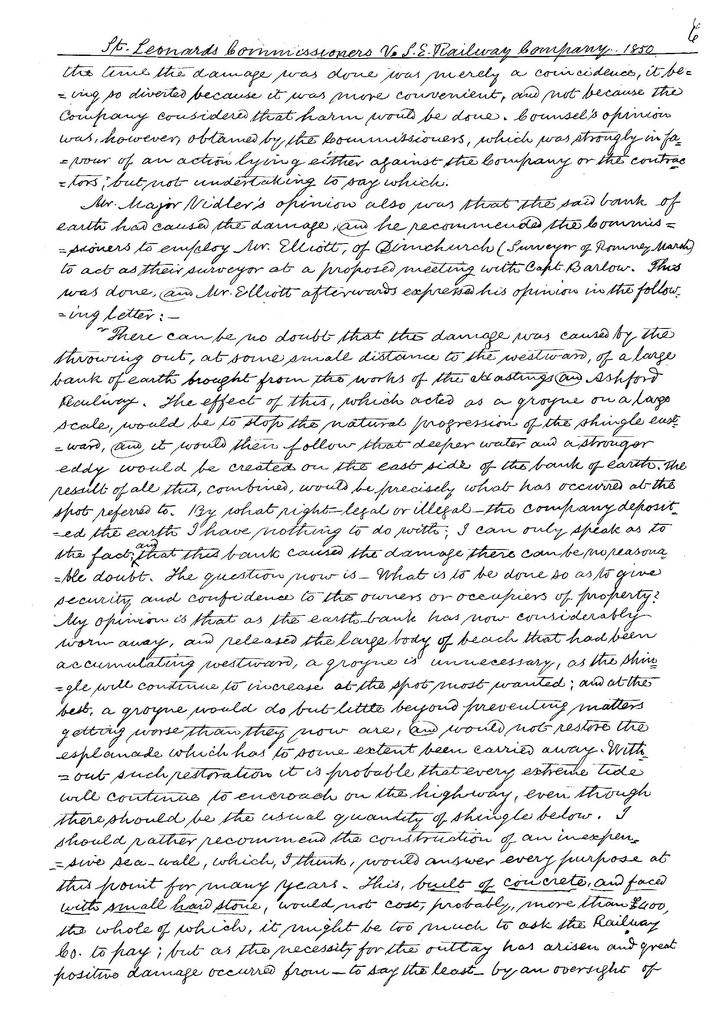 6
St. Leonards Commissioners V. S.E. Railway Company. 1850
the time the damage was done was merely a coincidence, it be=
=ing so diverted because it was more convenient, and not because the
Company considered that harm would be done. Counsel's opinion
was, however, obtained by the Commissioners, which was strongly in fa=
=vour of an action lying either against the Company or the contrac=
=tors; but not undertaking to say which.
Mr. Major Vidler's opinion also was that the said bank of
earth had caused the damage, and he recommended the Commis=
=sioners to employ Mr. Elliott, of Dimchurch (Surveyor of Romney Marsh)
to act as their surveyor at a proposed meeting with Capt. Barlow. This
was done, and Mr. Elliott afterwards expressed his opinion in the follow=
=ing letter:—
"There can be no doubt that the damage was caused by the
throwing out, at some small distance to the westward, of a large
bank of earth brought from the works of the Hastings and Ashford
Railway. The effect of this, which acted as a groyne on a large
scale, would be to stop the natural progression of the shingle east=
=ward, and it would then follow that deeper water and a stronger
eddy would be created on the east side of the bank of earth. The
result of all this, combined, would be precisely what has occurred at the
spot referred to. By what right—legal or illegal—the company deposit=
=ed the earth I have nothing to do with; I can only speak as to
the fact; and that this bank caused the damage there can be no reasona=
=ble doubt. The question now is—What is to be done so as to give
security and confidence to the owners or occupiers of property?
My opinion is that as the earth-bank has now considerably
worn away, and released the large body of beach that had been
accumulating westward, a groyne is unnecessary, as the shin=
=gle will continue to increase at the spot most wanted; and at the
best, a groyne would do but little beyond preventing matters
getting worse than they now are, and would not restore the
esplanade which has to some extent been carried away. With=
=out such restoration it is probable that every extreme tide
will continue to encroach on the highway, even though
there should be the usual quantity of shingle below. I
should rather recommend the construction of an inexpen=
=sive sea-wall, which, I think, would answer every purpose at
this point for many years. This, built of concrete, and faced
with small hard stone, would not cost, probably, more than £400,
the whole of which, it might be too much to ask the Railway
Co. to pay; but as the necessity for the outlay has arisen and great
positive damage occurred from—to say the least—by an oversight of